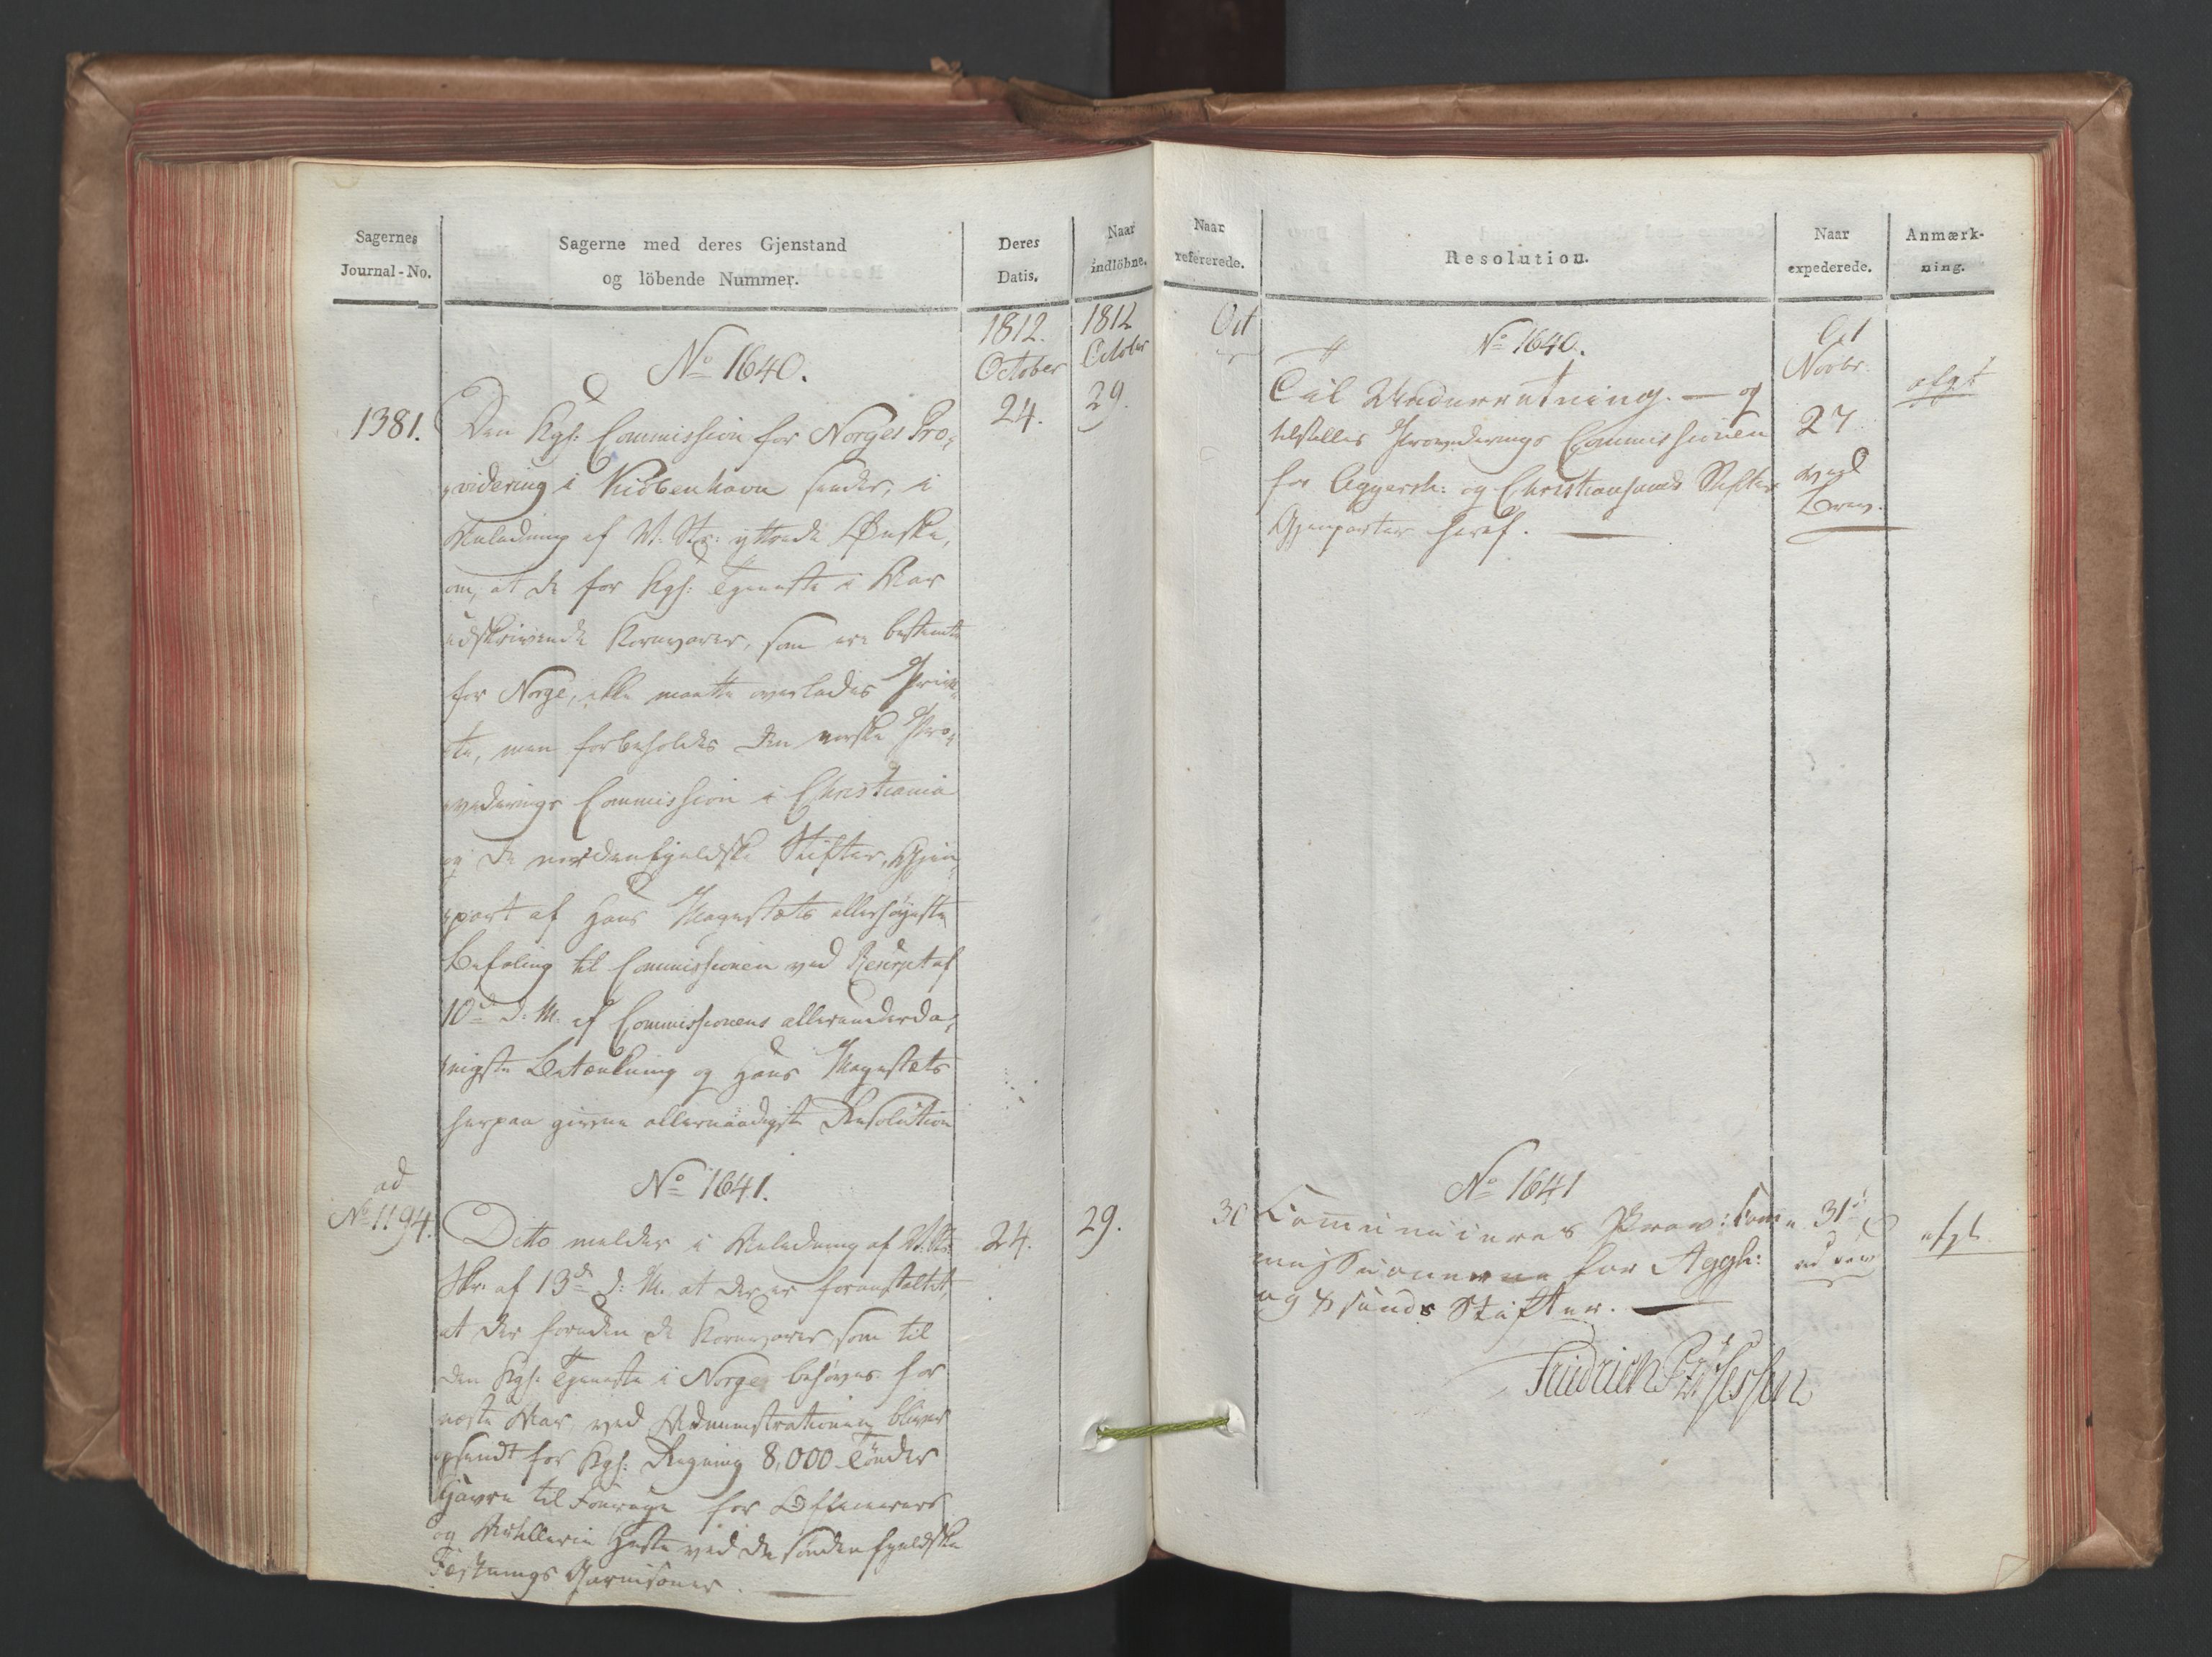 Sagernes
Journal-No.
Sagerne med deres Gjenstand
og löbende Nummer.
Deres
Datis.
Naar
indlöbne.
1812.
October
1812
October
No 1640.
1381.
24.
29.
Den Kgl: Commission for Norges Pro-
videring i Kiöbenhavn sender, i
Anledning af V. St: yttrede Ønske,
om, at de for Kgl: Tjeneste i Aar
udskrivende Kornvarer, som ere bestemte
for Norge, ikke maatte overlades Priva-
te, men forbeholdes den norske Pro-
viderings Commission i Christiania
og de nordenfjeldske Stifter, Gjen-
part af Hans Majestæts allerhöyeste
Befaling til Commissionen ved Rescript af
10de d: M. af Commissionens allerunderda-
nigste Betænkning og Hans Majestæts
herpaa givne allernaadigste Resolution
No 1641.
ad
No 1194.
Ditto melder i Anledning af V. St:
Skr. af 13de d: M. at der er foranstaltet,
at der foruden de Kornvarer som til
den Kgl: Tjeneste i Norge behöves for
næste Aar, ved Administrationen bliver
opsendt for Kgl: Regning 8,000 Tönder
Havre til Fourage for Officerers
og Artillerie Heste ved de söndenfjeldske
Fæstnings Garnisoner.
24.
29.
Naar
refererede.
Resolution.
Naar
expederede.
Anmærk-
ning.
Oct
No 1640.
Oct
Novbr.
Til Underretning. — og
tilstilles Provederings Commissionen
for Aggersh: og Christiansands Stifter
Gjenparter heraf. —
27
ved
Brev.
afgt
No 1641
30
Communiceres Prov: Com-
missionerne for Aggh:
og Xsands Stifter. —
31
afgt.
Friedrich Pz Hessen